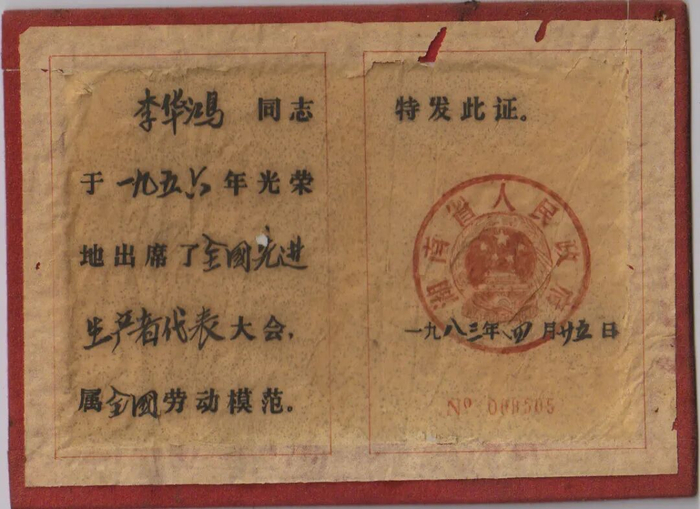 李华鸿 同志
于一九五六年光荣
地出席了全國先进
生产者代表大会,
属全國劳动模范。
特发此证。
湖南省人民政府
一九八三年四月廿五日
Nº 000505